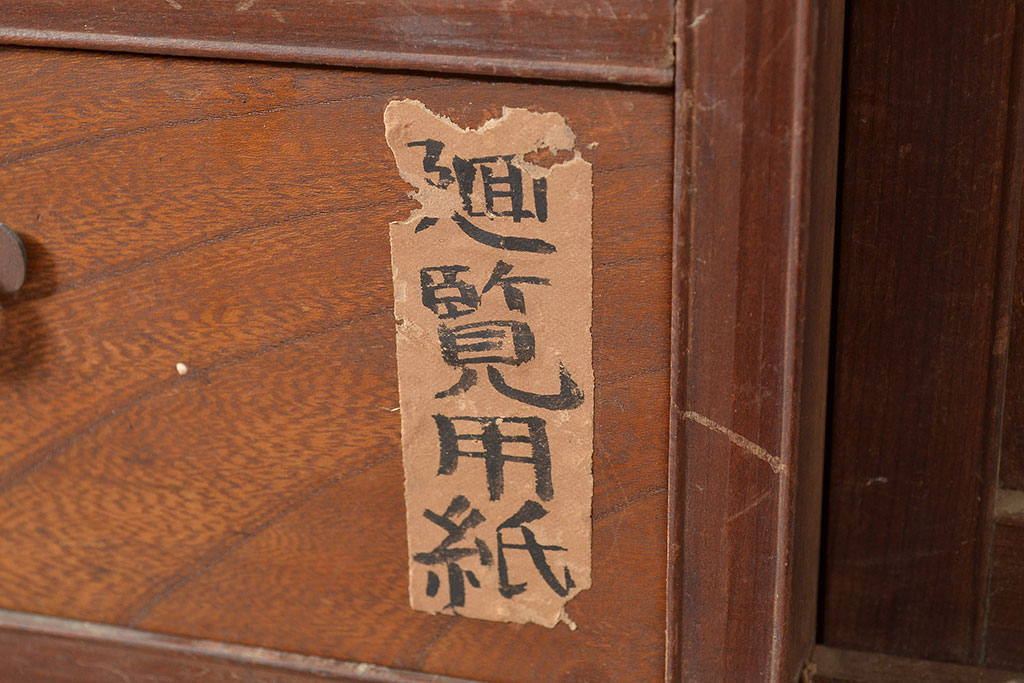 廻覧用紙